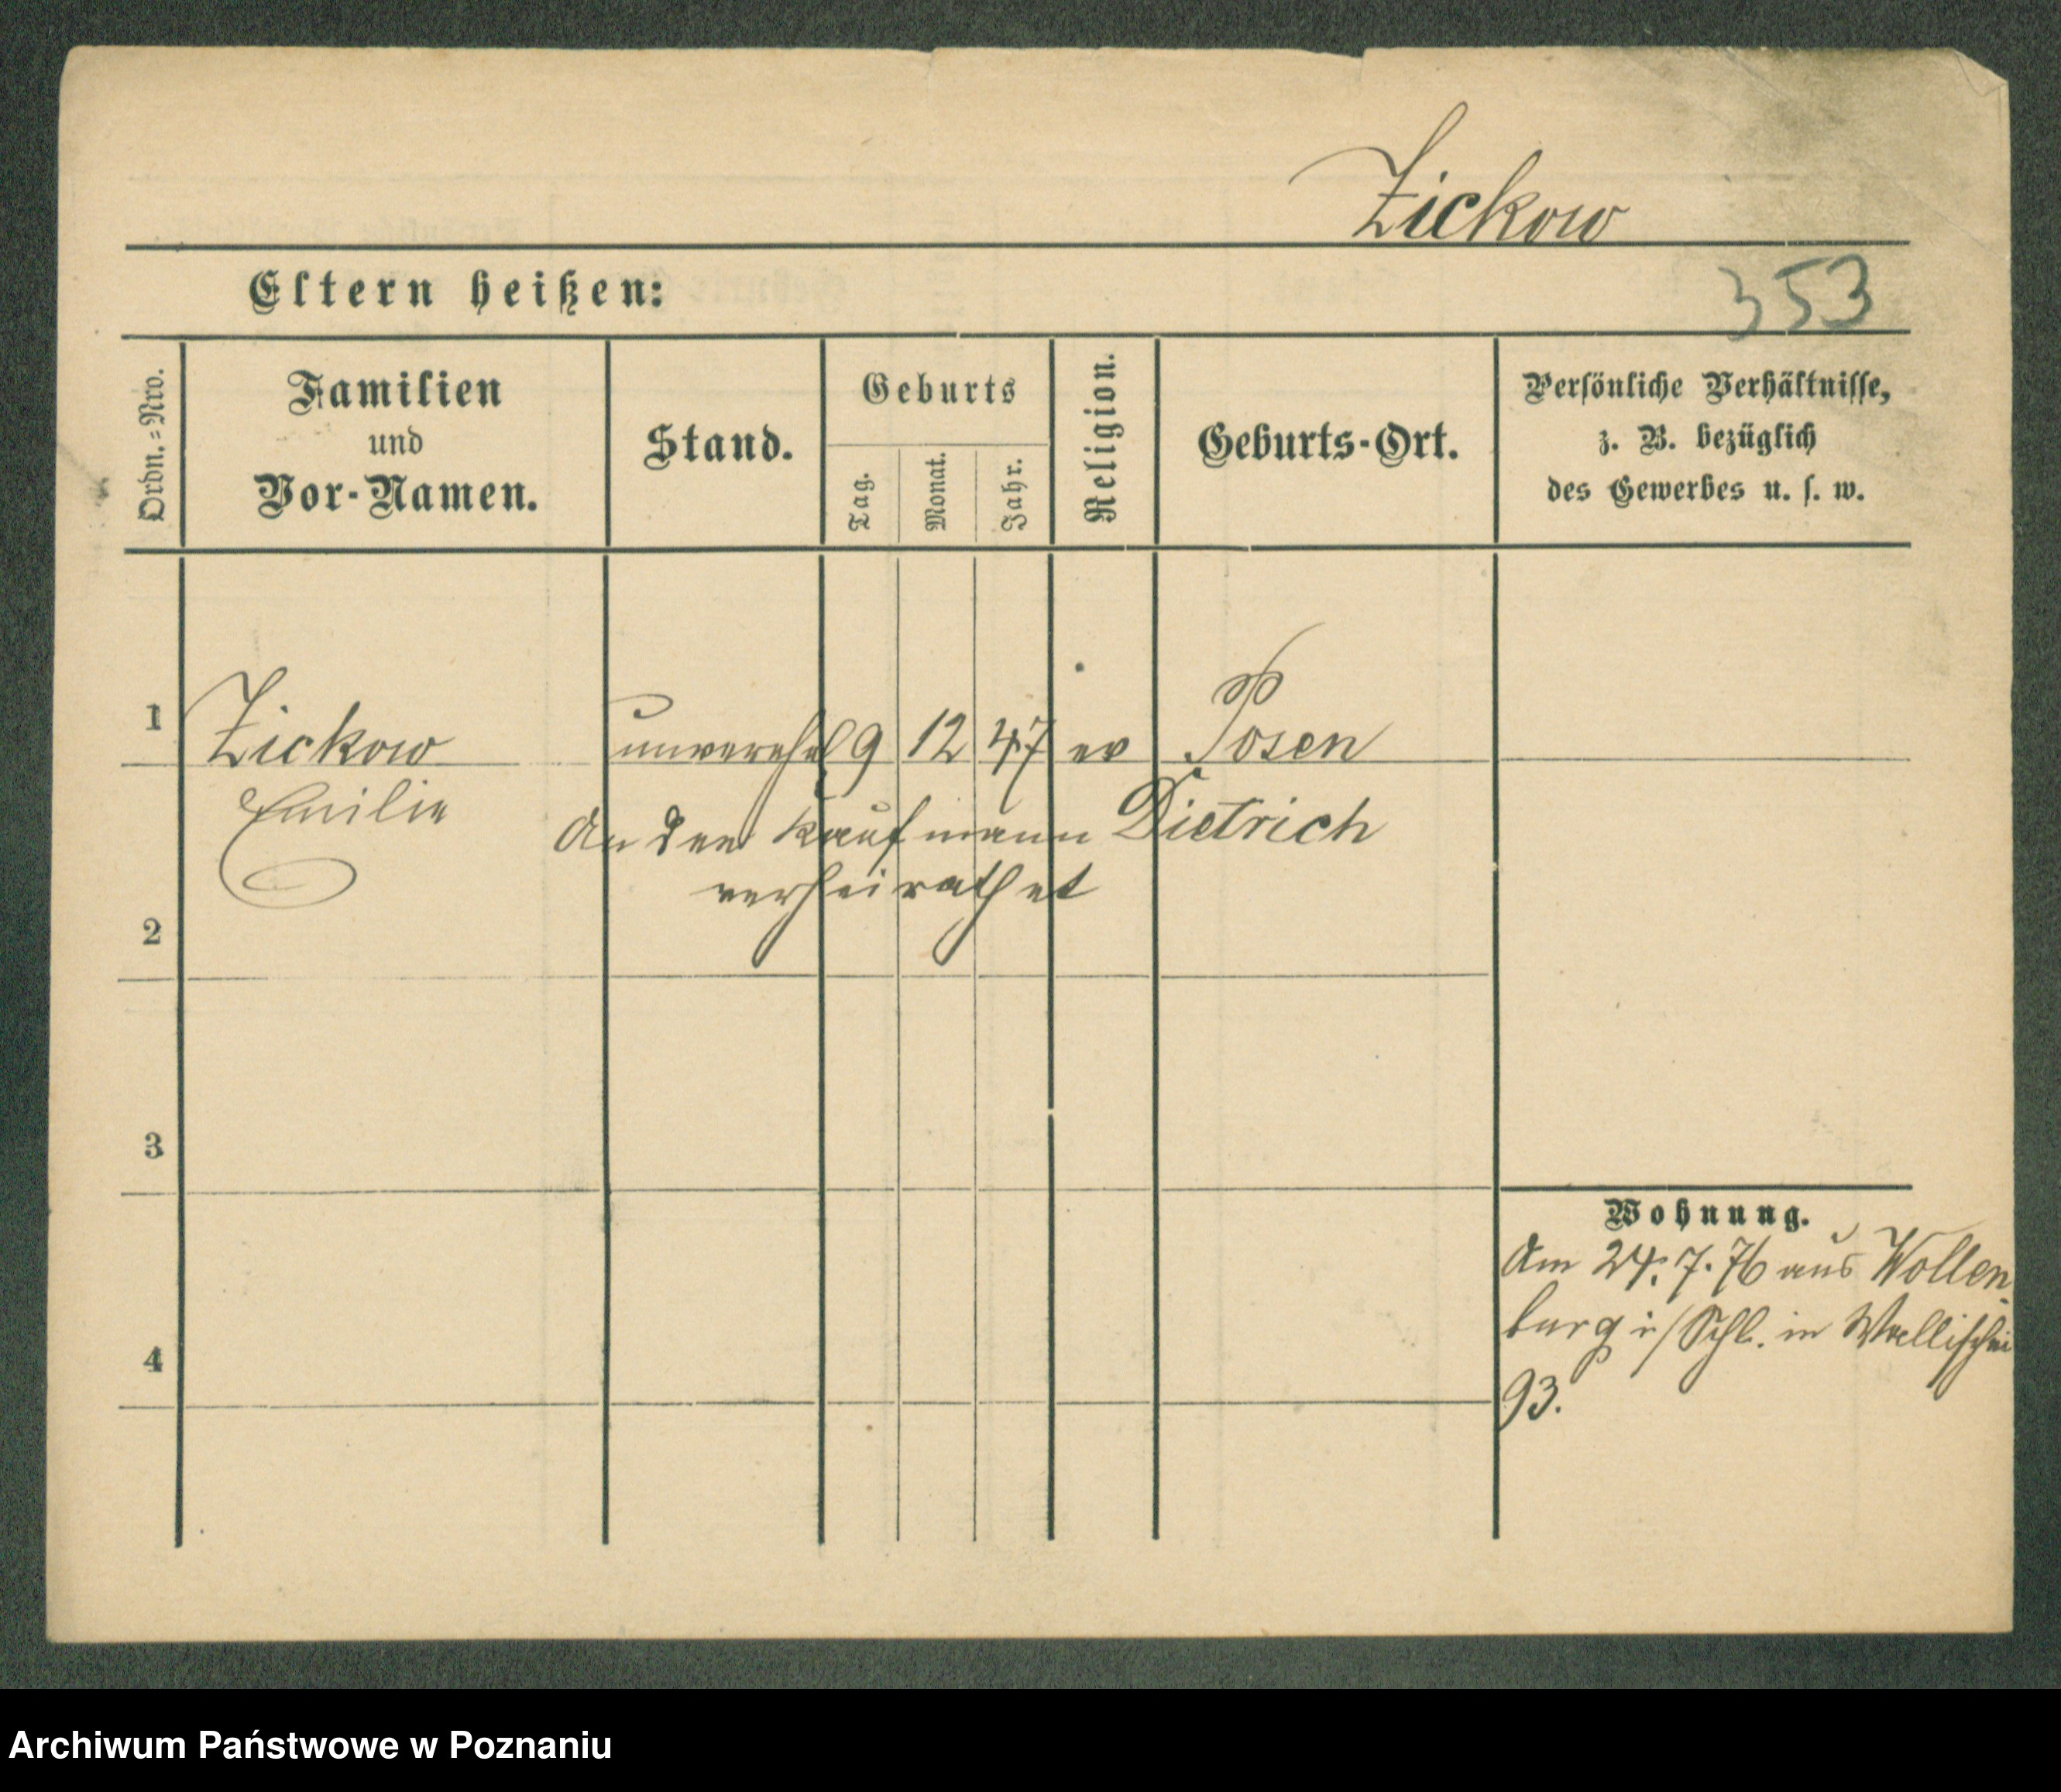 Zickow
Eltern heißen:
353
Ordn.=Nro.
Familien
und
Vor-Namen.
Stand.
Geburts
Tag.
Monat.
Jahr.
Religion.
Geburts-Ort.
Persönliche Verhältnisse,
z. B. bezüglich
des Gewerbes u. s. w.
1
Zickow unverehel 9 12 47 ev Posen
Emilie
An den Kaufmann Dietrich
verheirathet
2
3
Wohnung.
Am 24.7.76 aus Wollen
burg i/Schl. in Wallischei
4
93.
Archiwum Państwowe w Poznaniu